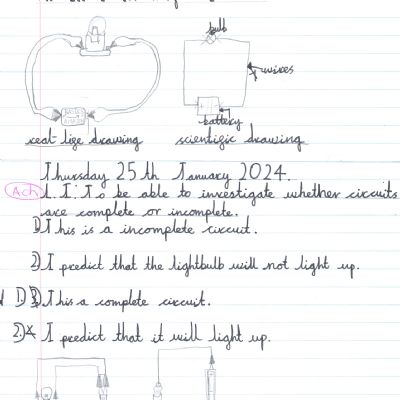 bulb
wires
battery
real-lige drawing
scientigic drawing
Thursday 25th January 2024.
Ach
L.I: To be able to investigate whether circuits
are complete or incomplete.
1) This is a incomplete circuit.
2) I predict that the lightbulb will not light up.
1) 3) This a complete circuit.
2) I predict that it will light up.